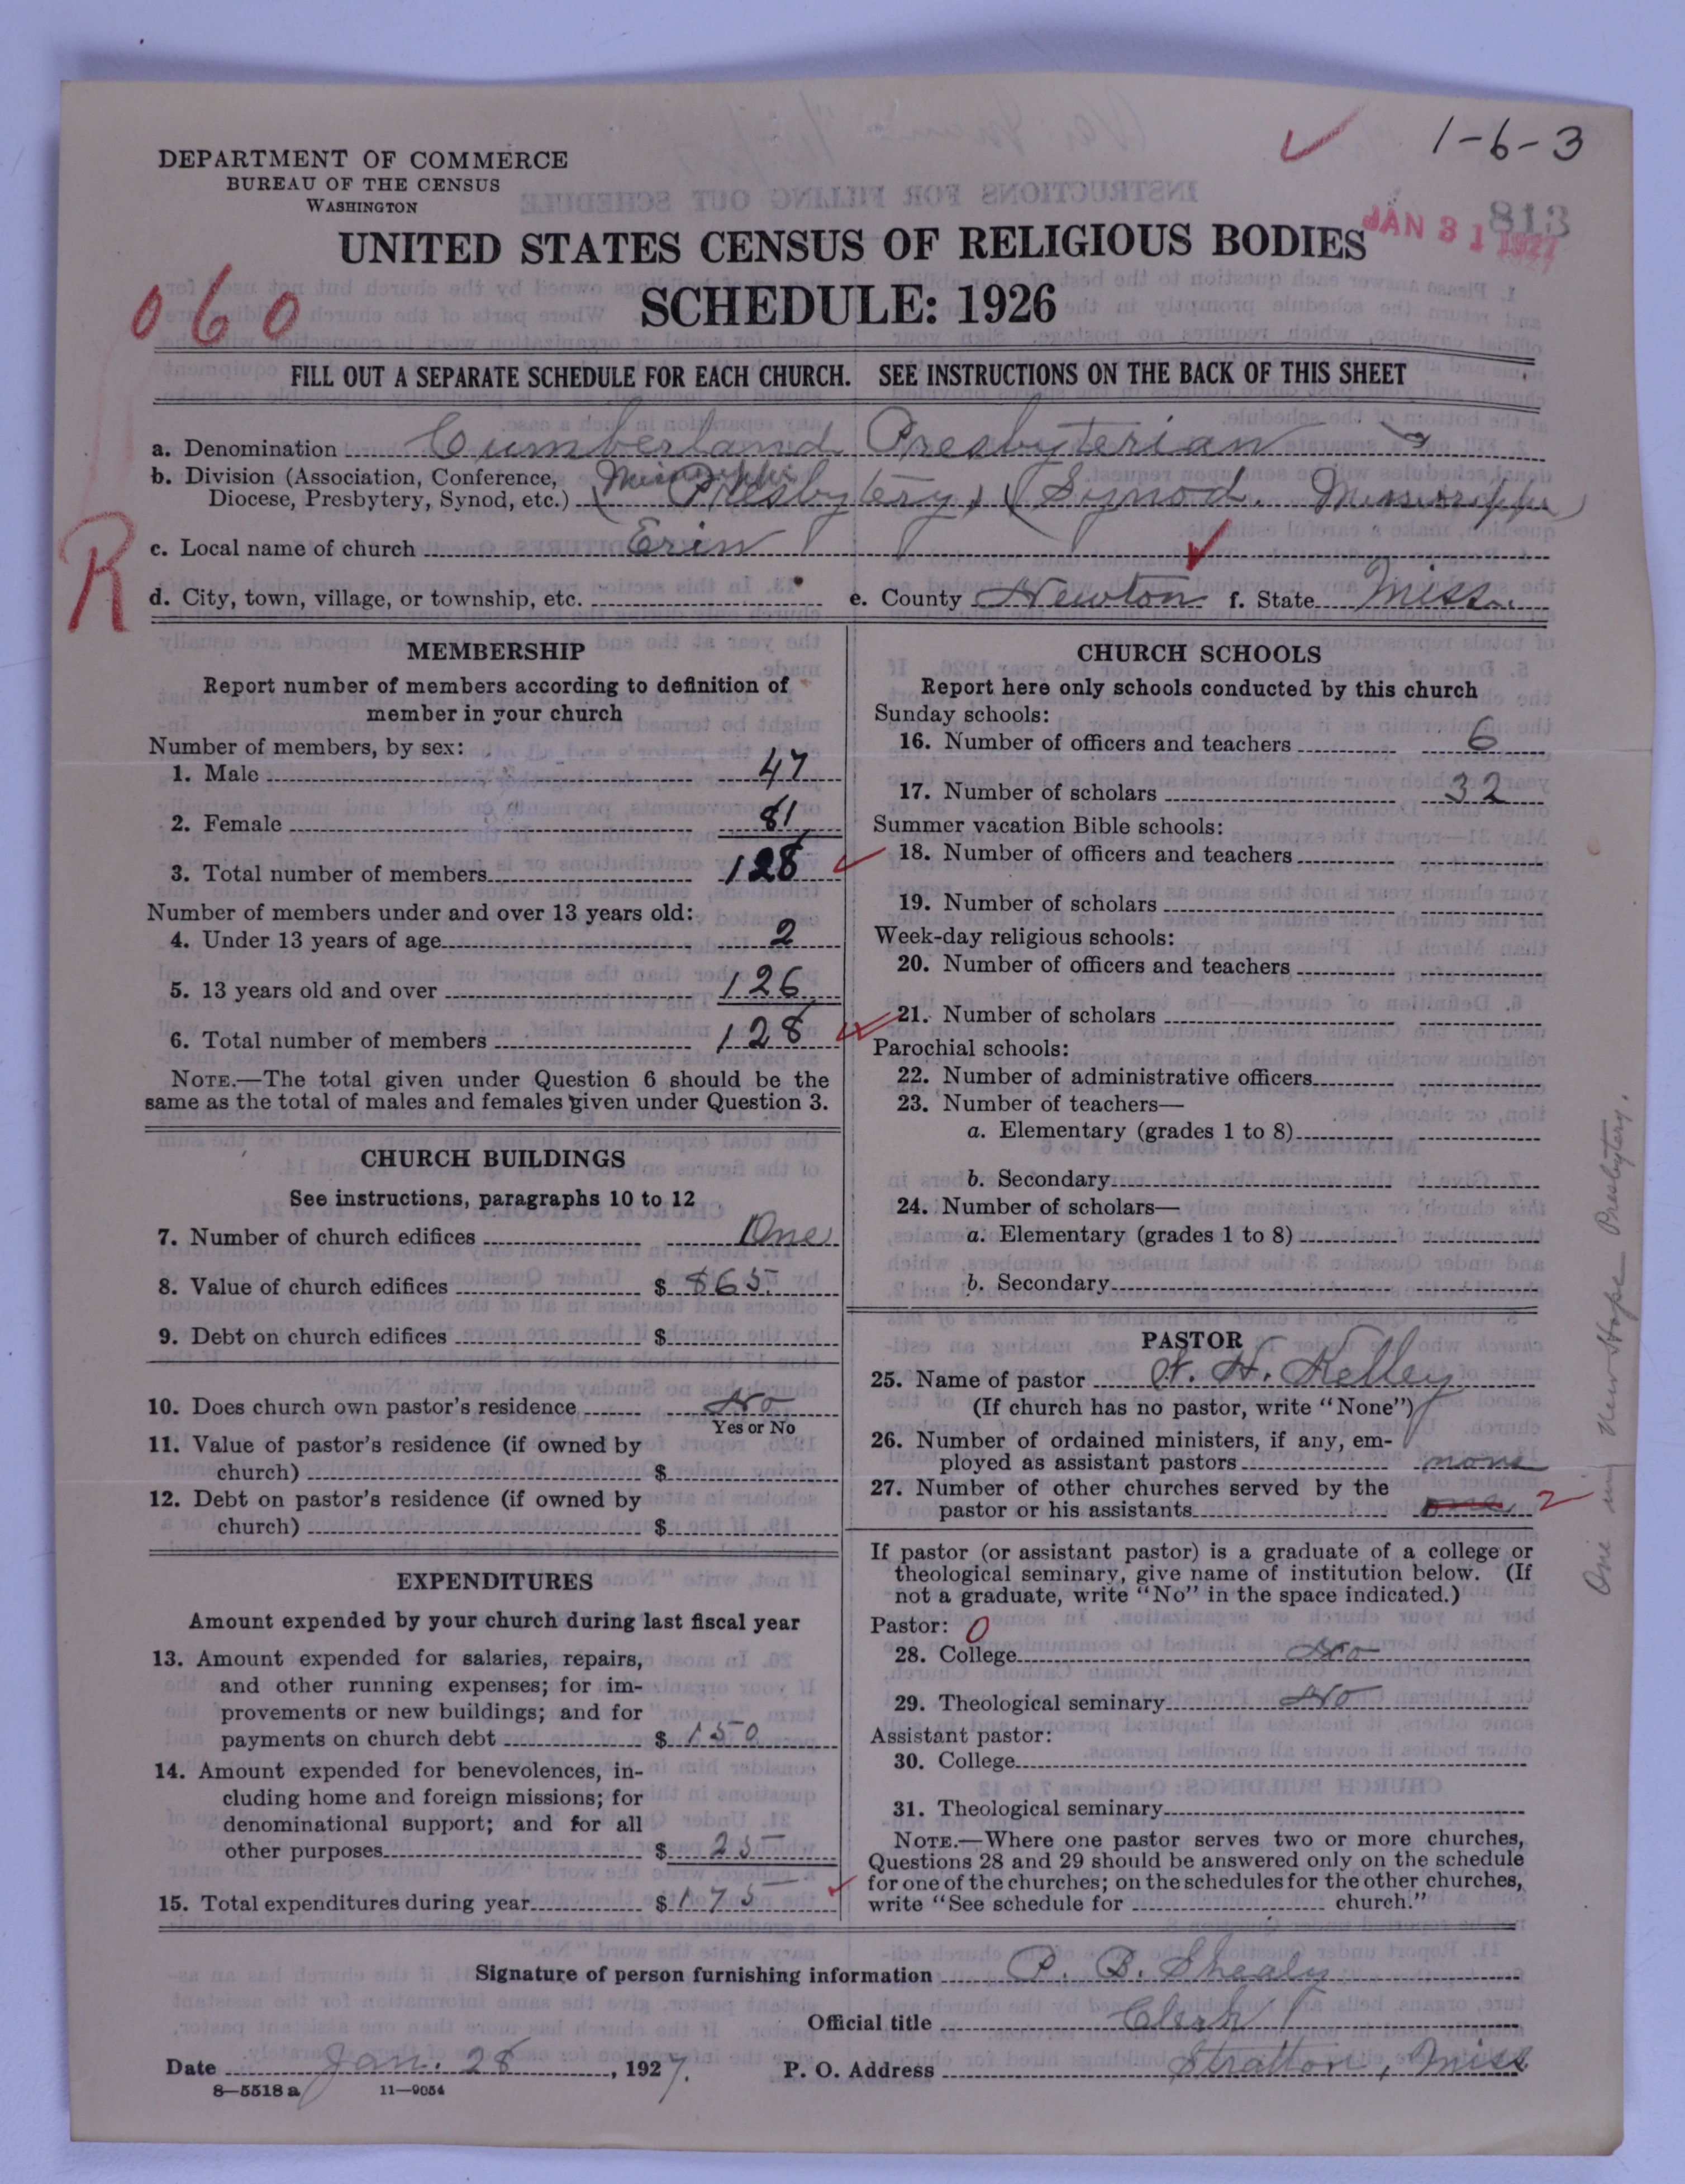 1-6-3
DEPARTMENT OF COMMERCE
BUREAU OF THE CENSUS
WASHINGTON
813
JAN 31 1927
UNITED STATES CENSUS OF RELIGIOUS BODIES
SCHEDULE: 1926
060
FILL OUT A SEPARATE SCHEDULE FOR EACH CHURCH. SEE INSTRUCTIONS ON THE BACK OF THIS SHEET
a. Denomination Cumberland Presbyterian
b. Division (Association, Conference, Mississippi
Diocese, Presbytery, Synod, etc.) (Presbytery) (Synod. Mississippi)
R
c. Local name of church Erin
d. City, town, village, or township, etc. e. County Newton f. State Miss.
MEMBERSHIP
Report number of members according to definition of
member in your church
Number of members, by sex:
1. Male 47
2. Female 81
3. Total number of members 128
Number of members under and over 13 years old:
4. Under 13 years of age 2
5. 13 years old and over 126
6. Total number of members 128
NOTE.—The total given under Question 6 should be the
same as the total of males and females given under Question 3.
CHURCH BUILDINGS
See instructions, paragraphs 10 to 12
7. Number of church edifices One
8. Value of church edifices $ 865
9. Debt on church edifices $
10. Does church own pastor's residence No
Yes or No
11. Value of pastor's residence (if owned by
church) $
12. Debt on pastor's residence (if owned by
church) $
EXPENDITURES
Amount expended by your church during last fiscal year
13. Amount expended for salaries, repairs,
and other running expenses; for im-
provements or new buildings; and for
payments on church debt $ 150
14. Amount expended for benevolences, in-
cluding home and foreign missions; for
denominational support; and for all
other purposes $ 25
15. Total expenditures during year $ 175
CHURCH SCHOOLS
Report here only schools conducted by this church
Sunday schools:
16. Number of officers and teachers 6
17. Number of scholars 32
Summer vacation Bible schools:
18. Number of officers and teachers
19. Number of scholars
Week-day religious schools:
20. Number of officers and teachers
21. Number of scholars
Parochial schools:
22. Number of administrative officers
23. Number of teachers—
a. Elementary (grades 1 to 8)
b. Secondary
24. Number of scholars—
a. Elementary (grades 1 to 8)
b. Secondary
PASTOR
25. Name of pastor H. Kelley
(If church has no pastor, write "None")
26. Number of ordained ministers, if any, em-
ployed as assistant pastors none
27. Number of other churches served by the
pastor or his assistants one 2
If pastor (or assistant pastor) is a graduate of a college or
theological seminary, give name of institution below. (If
not a graduate, write "No" in the space indicated.)
Pastor: 0
28. College No
29. Theological seminary No
Assistant pastor:
30. College
31. Theological seminary
NOTE.—Where one pastor serves two or more churches,
Questions 28 and 29 should be answered only on the schedule
for one of the churches; on the schedules for the other churches,
write "See schedule for church."
One in New Hope Presbytery.
Signature of person furnishing information P. B. Shealy
Official title Clerk
Date Jan. 28, 1927. P. O. Address Stratton, Miss
8—5518 a 11—9054